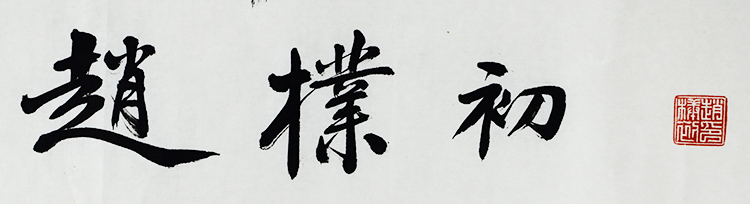 趙樸初
趙印
樸初